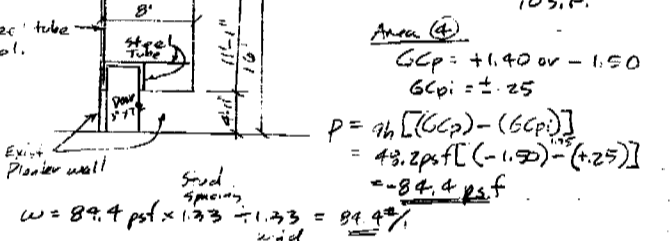 8'
tube
ol.
Steel
Tube
11'-1"
16'
Door
Exist
Planter wall
Area ④
GCp = +1.40 or - 1.50
GCpi = ± .25
P = qh [(GCp) - (GCpi)]
= 48.2psf [(-1.50) - (+.25)]
1.75
= -84.4 psf
Stud
spacing
w = 84.4 psf × 1.33 ÷ 1.33 = 84.4#/